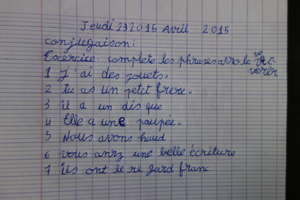 Jeudi 23 2015 Avril 2015
conjugaison:
Exercice complète les phrases avec le
1 J'ai des jouets.
2 tu as un petit frère.
3 il a un disque
4 Elle a une poupée.
5 Nous avons
6 vous avez une belle écriture
7 ils ont le re gard franc